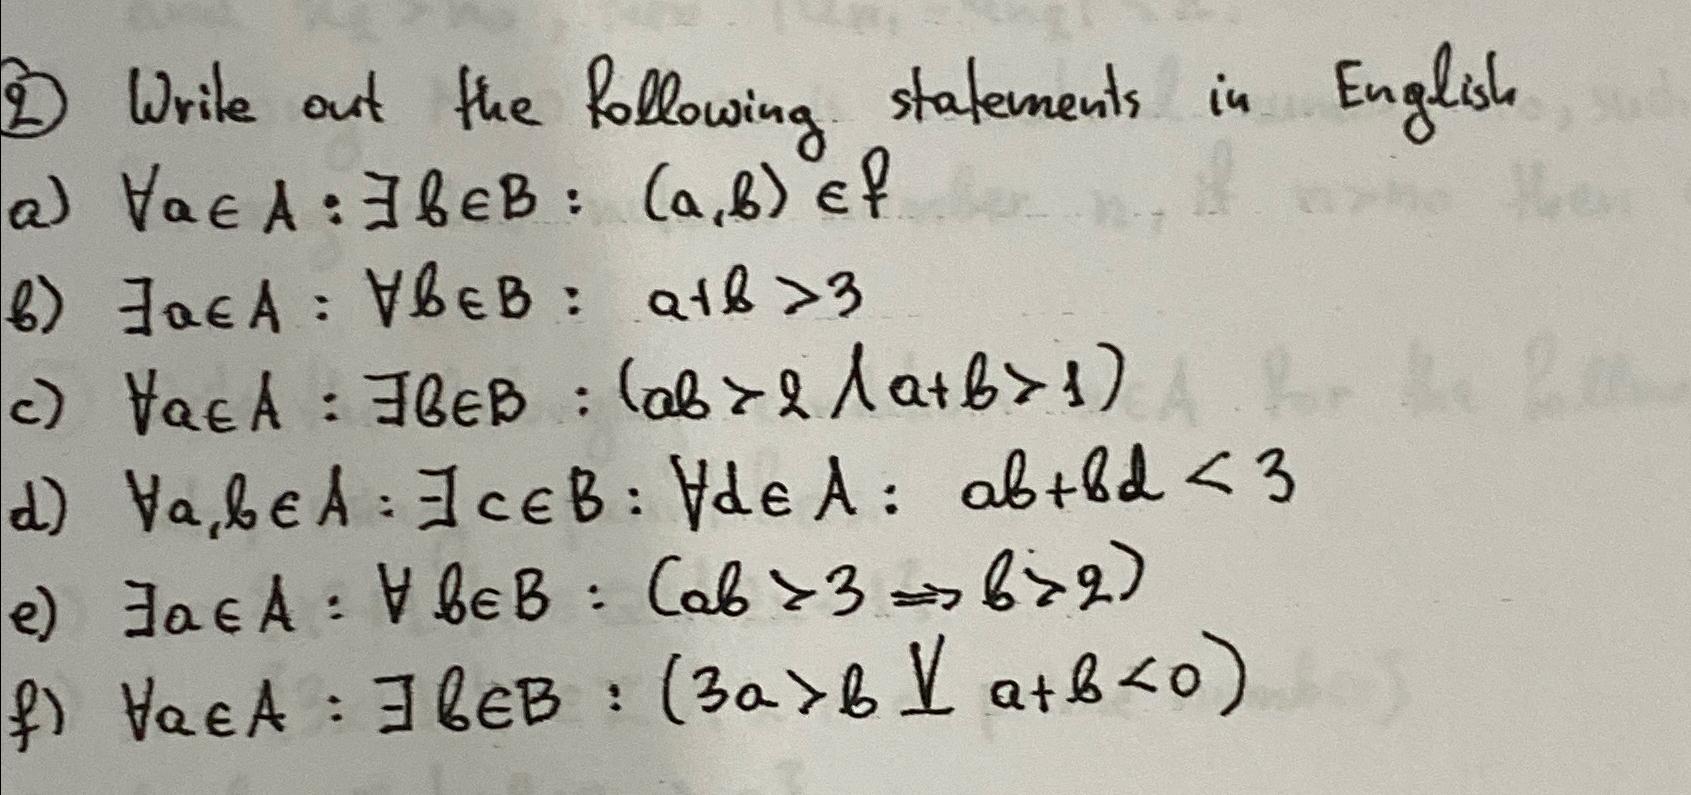 ② Write out the following statements in English
a) ∀a∈A : ∃b∈B : (a,b) ∈ f
b) ∃a∈A : ∀b∈B : a+b > 3
c) ∀a∈A : ∃b∈B : (ab > 2 ∧ a+b > 1)
d) ∀a,b∈A : ∃c∈B : ∀d∈A : ab+bd < 3
e) ∃a∈A : ∀b∈B : (ab > 3 ⇒ b > 2)
f) ∀a∈A : ∃b∈B : (3a > b ⊻ a+b < 0)